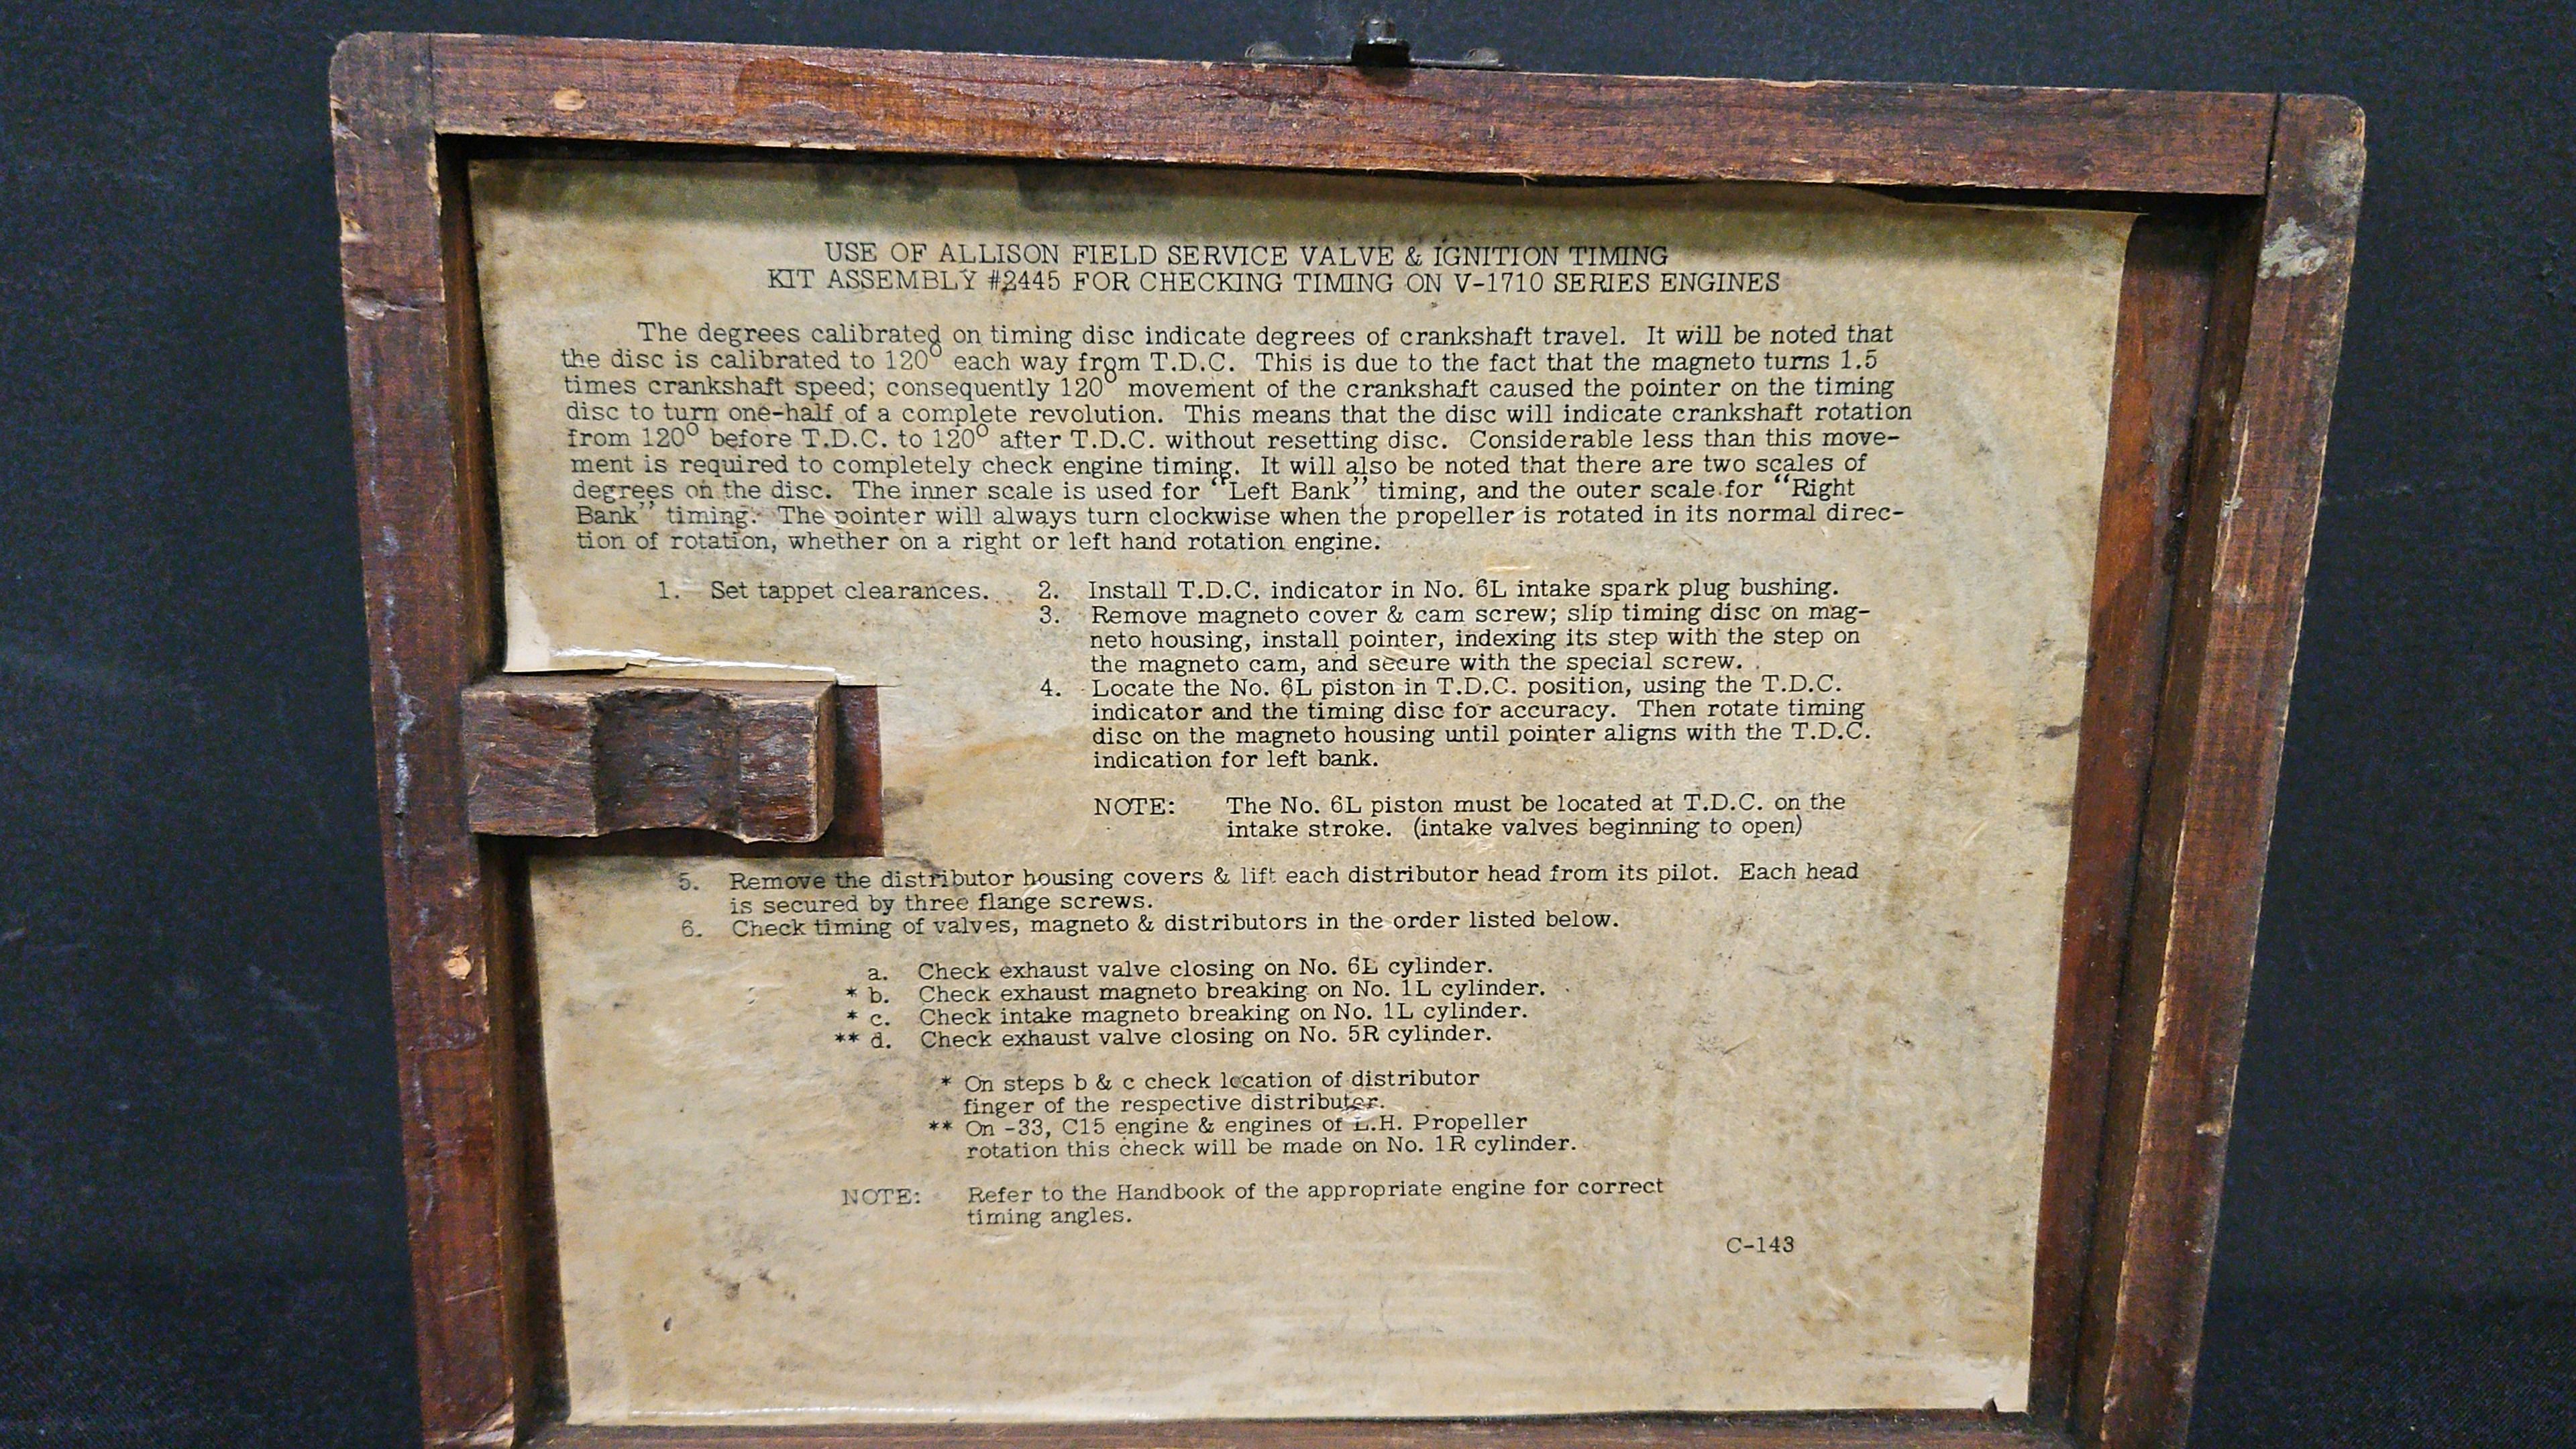 USE OF ALLISON FIELD SERVICE VALVE & IGNITION TIMING
KIT ASSEMBLY #2445 FOR CHECKING TIMING ON V-1710 SERIES ENGINES
The degrees calibrated on timing disc indicate degrees of crankshaft travel. It will be noted that
the disc is calibrated to 120° each way from T.D.C. This is due to the fact that the magneto turns 1.5
times crankshaft speed; consequently 120° movement of the crankshaft caused the pointer on the timing
disc to turn one-half of a complete revolution. This means that the disc will indicate crankshaft rotation
from 120° before T.D.C. to 120° after T.D.C. without resetting disc. Considerable less than this move-
ment is required to completely check engine timing. It will also be noted that there are two scales of
degrees on the disc. The inner scale is used for "Left Bank" timing, and the outer scale for "Right
Bank" timing. The pointer will always turn clockwise when the propeller is rotated in its normal direc-
tion of rotation, whether on a right or left hand rotation engine.
1. Set tappet clearances.
2. Install T.D.C. indicator in No. 6L intake spark plug bushing.
3. Remove magneto cover & cam screw; slip timing disc on mag-
neto housing, install pointer, indexing its step with the step on
the magneto cam, and secure with the special screw.
4. Locate the No. 6L piston in T.D.C. position, using the T.D.C.
indicator and the timing disc for accuracy. Then rotate timing
disc on the magneto housing until pointer aligns with the T.D.C.
indication for left bank.
NOTE: The No. 6L piston must be located at T.D.C. on the
intake stroke. (intake valves beginning to open)
5. Remove the distributor housing covers & lift each distributor head from its pilot. Each head
is secured by three flange screws.
6. Check timing of valves, magneto & distributors in the order listed below.
a. Check exhaust valve closing on No. 6L cylinder.
* b. Check exhaust magneto breaking on No. 1L cylinder.
* c. Check intake magneto breaking on No. 1L cylinder.
** d. Check exhaust valve closing on No. 5R cylinder.
* On steps b & c check location of distributor
finger of the respective distributor.
** On -33, C15 engine & engines of L.H. Propeller
rotation this check will be made on No. 1R cylinder.
NOTE: Refer to the Handbook of the appropriate engine for correct
timing angles.
C-143